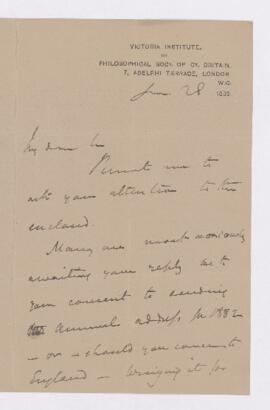 VICTORIA INSTITUTE,
OR
PHILOSOPHICAL SOCY. OF GT. BRITAIN.
7, ADELPHI TERRACE, LONDON
W.C.
June 28 188
My dear Sir
Permit me to
ask your attention to the
enclosed.
Many are most anxiously
awaiting your reply as to
your consent to sending
Annual address for 1882
- or - should you come to
England - bringing it for